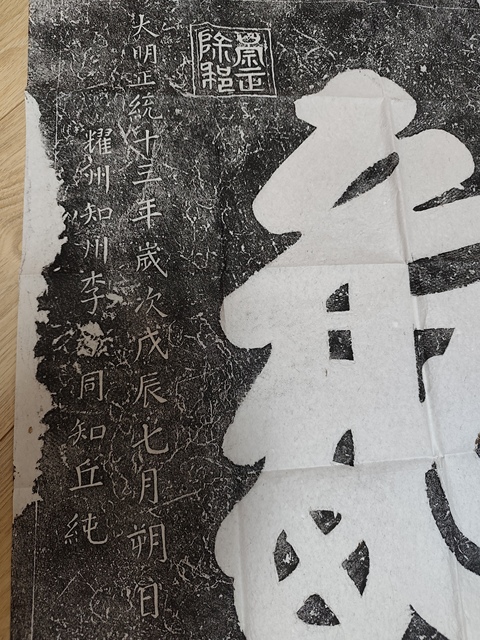 崇正
除邪
大明正統十三年歲次戊辰七月朔日
耀州知州李 同知丘純